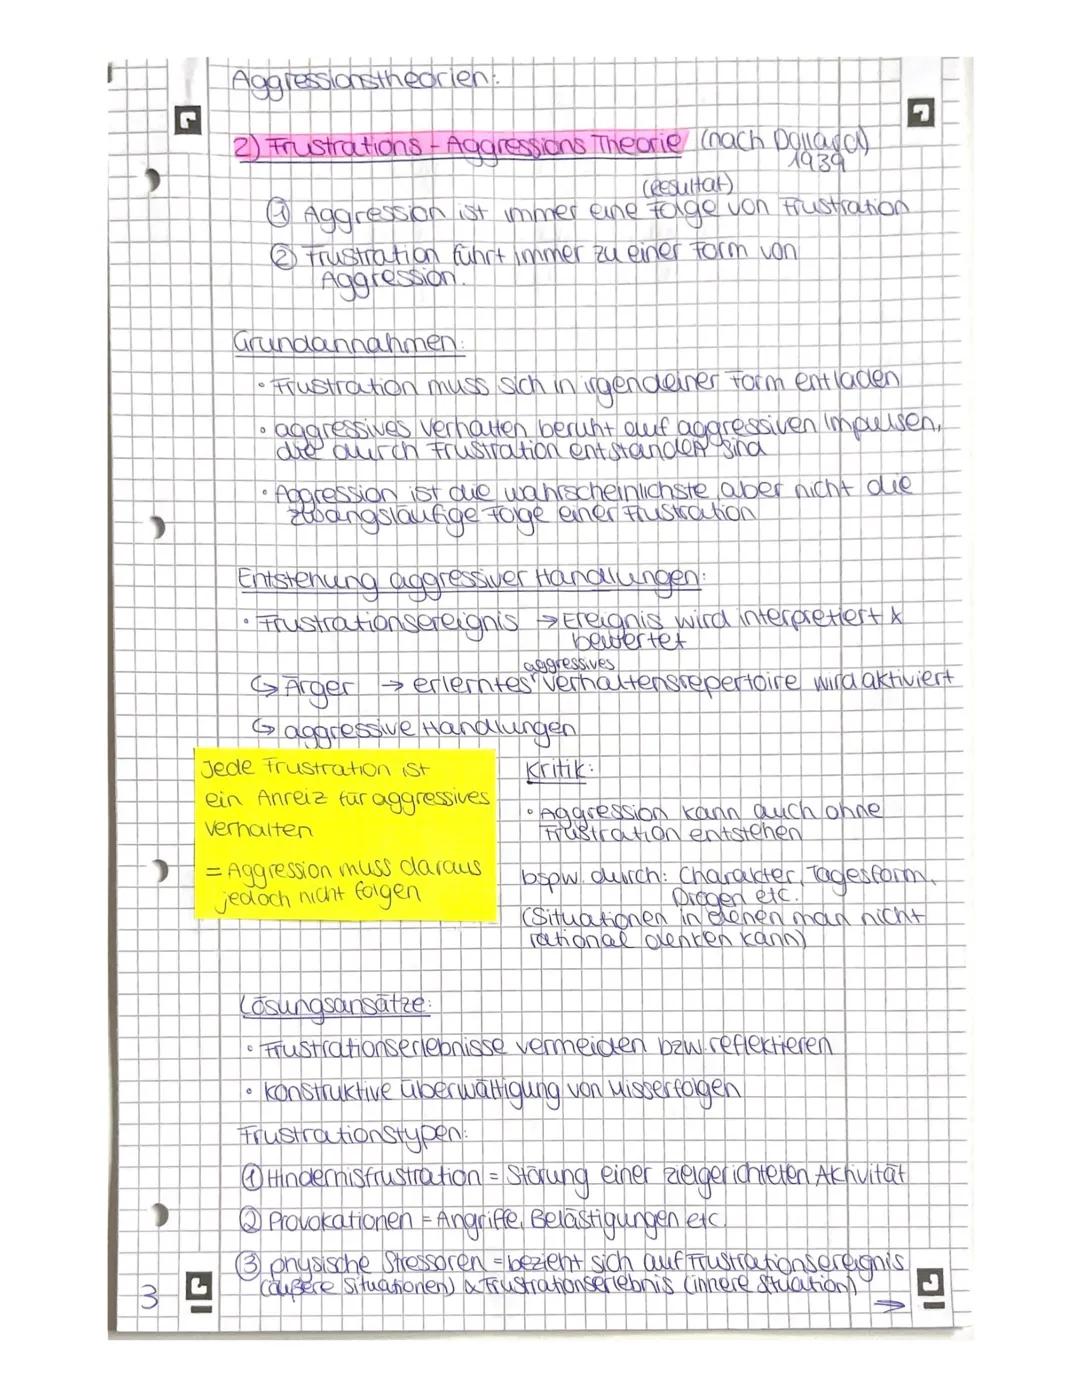 Aggressionstheorien:
2) Frustrations-Aggressions Theorie (nach Dollard)
1939
(Resultat)
① Aggression ist immer eine Folge von Frustration
② Frustration führt immer zu einer Form von
Aggression.
Grundannahmen:
• Frustration muss sich in irgendeiner Form entladen
• aggressives Verhalten beruht auf aggressiven Impulsen,
die durch Frustration entstanden sind
• Aggression ist die wahrscheinlichste, aber nicht die
zwangsläufige Folge einer Frustration
Entstehung aggressiver Handlungen:
• Frustrationsereignis → Ereignis wird interpretiert &
bewertet
aggressives
↳ Ärger → erlerntes Verhaltensrepertoire wird aktiviert
↳ aggressive Handlungen
Jede Frustration ist
ein Anreiz für aggressives
Verhalten
= Aggression muss daraus
jedoch nicht folgen
Kritik:
• Aggression kann auch ohne
Frustration entstehen
bspw. durch: Charakter, Tagesform,
Drogen etc.
(Situationen in denen man nicht
rational denken kann)
Lösungsansätze:
• Frustrationserlebnisse vermeiden bzw. reflektieren
• konstruktive Überwältigung von Misserfolgen
Frustrationstypen:
① Hindernisfrustration = Störung einer zielgerichteten Aktivität
② Provokationen = Angriffe, Belästigungen etc.
③ physische Stressoren = bezieht sich auf Frustrationsereignis
(äußere Situationen) & Frustrationserlebnis (innere Situation)
3 →